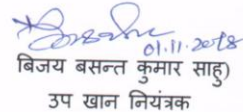 01.11.2018
बिजय बसन्त कुमार साहु)
उप खान नियंत्रक